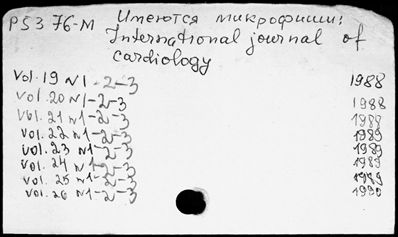 P53 76-M Имеются микрофиши:
International journal of
cardiology
Vol.19 N1-2-3 1988
Vol.20 N1-2-3 1988
Vol.21 N1-2-3 1988
Vol.22 N1-2-3 1989
Vol.23 N1-2-3 1989
Vol.24 N1-2-3 1989
Vol.25 N1-2-3 1989
Vol.26 N1-2-3 1990